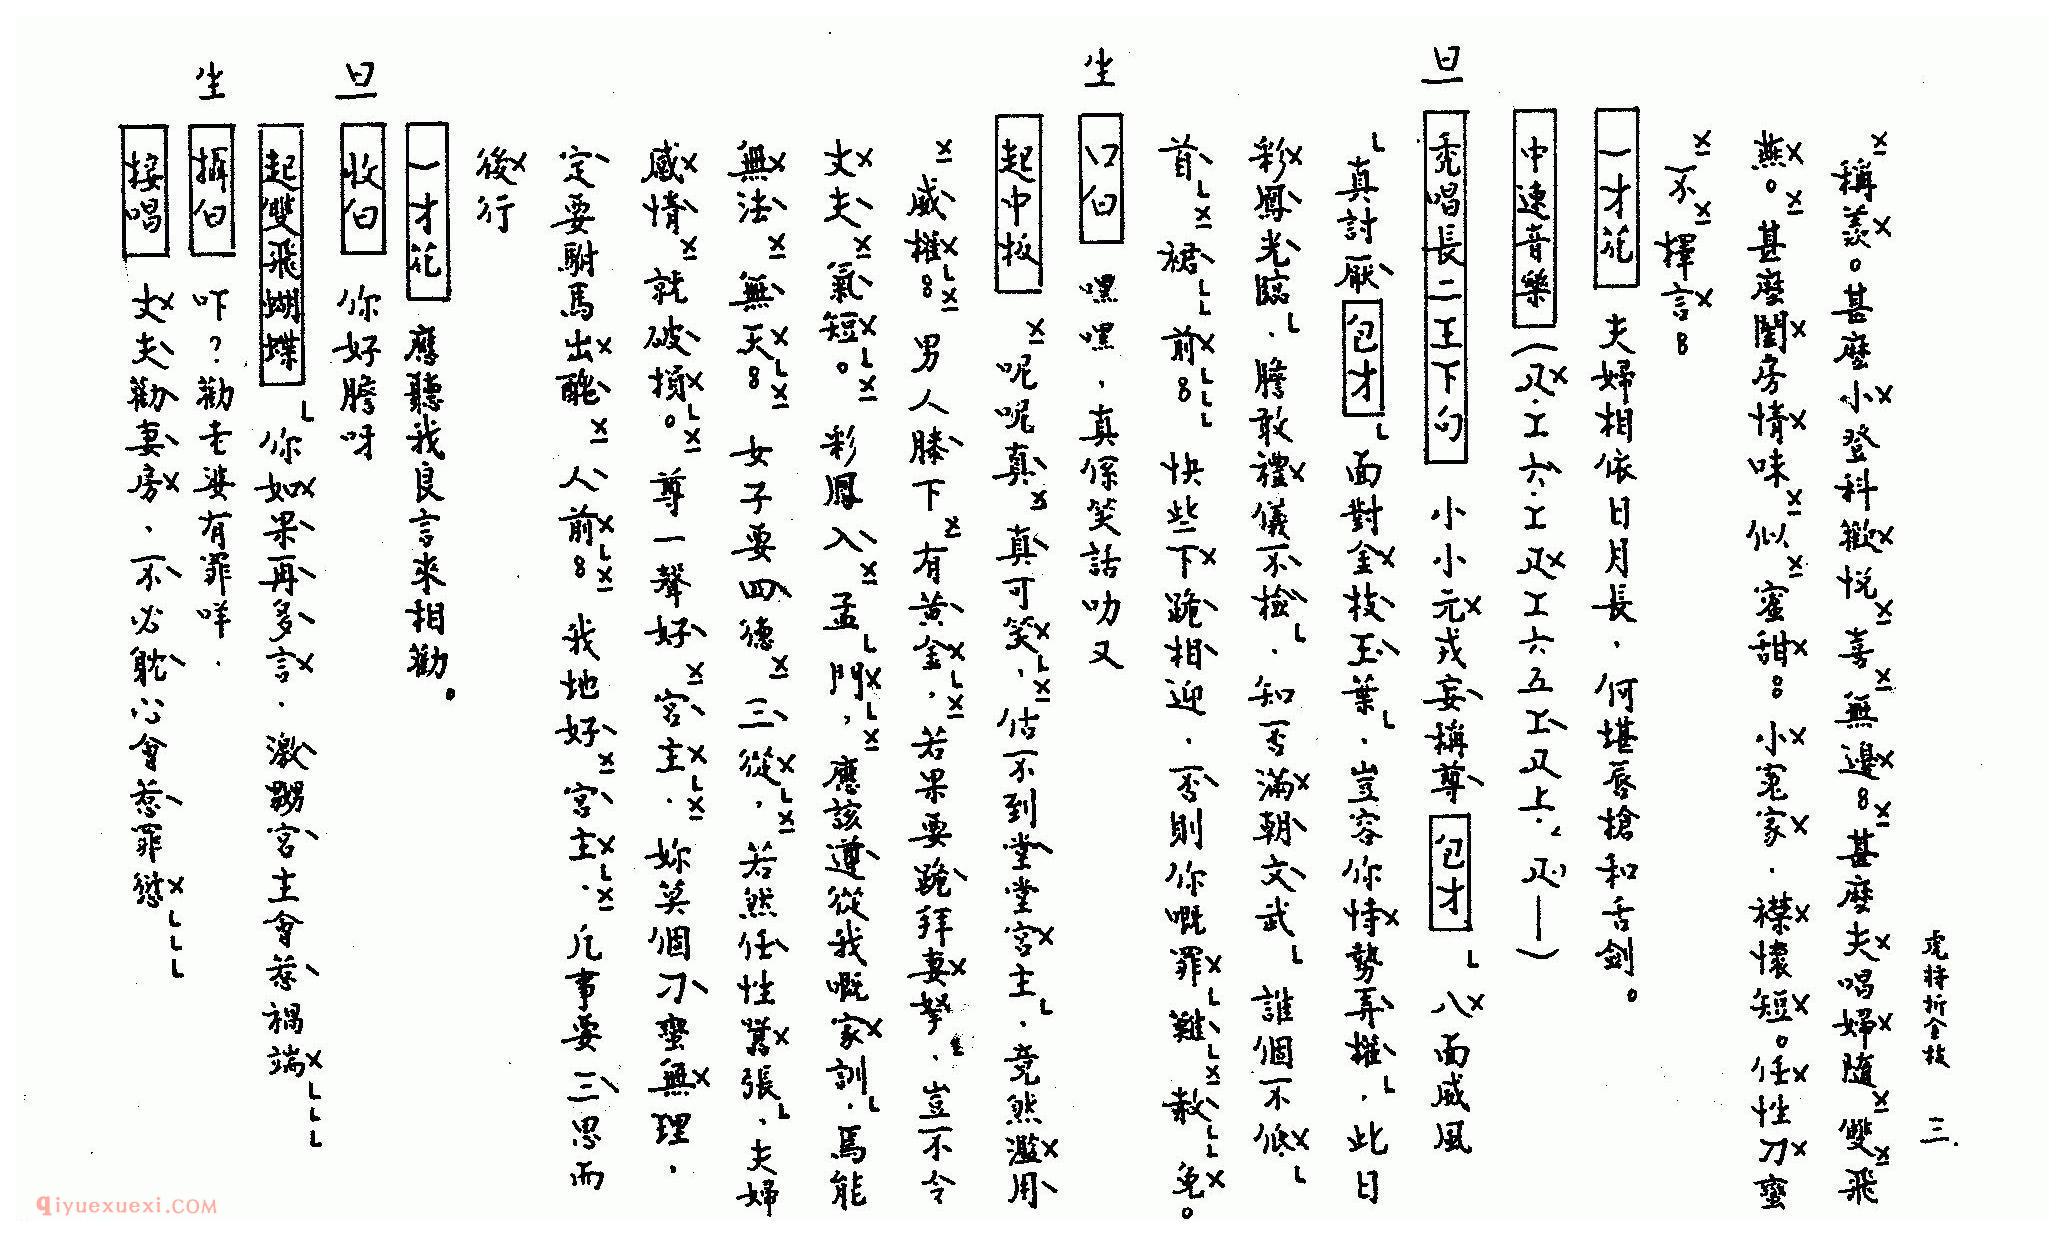 虎將折金枝 三.
稱羨。甚麼小登科歡悅 喜無邊8 甚麼夫唱婦隨 雙飛
燕。甚麼閨房情味 似蜜甜8 小冤家．襟懷短。任性刁蠻
不擇言8
一才花 夫婦相依日月長．何堪唇槍和舌劍。
中速音樂（尺．工六．工尺工六五工尺上．尺——）
旦 禿唱長二王下句 小小元戎妄稱尊 包才 八面威風
真討厭 包才 面對金枝玉葉．豈容你恃勢弄權．此日
彩鳳光臨．膽敢禮儀不檢．知否滿朝文武 誰個不低
首 裙 前8 快些下跪相迎．否則你嘅罪 難 赦 免。
生 口白 嘿嘿．真係笑話叻又
起中板 呢呢真 真可笑．估不到堂堂宮主．竟然濫用
威權8 男人膝下 有黃金．若果要跪拜妻孥．豈不令
丈夫 氣短。彩鳳入 孟門，應該遵從我嘅家訓．焉能
無法 無天8 女子要四德 三從．若然任性囂張．夫婦
感情 就破損。尊一聲好 宮主．妳莫個刁蠻無理．
定要駙馬出醜 人前8 我地好 宮主．凡事要三思而
後行
一才花 應聽我良言來相勸。
旦 收白 你好膽呀
起雙飛蝴蝶 你如果再多言．激嬲宮主會惹禍端
生 攝白 吓？勸老婆有罪咩．
接唱 丈夫勸妻房．不必躭心會惹罪愆
qiyuexuexi.COM